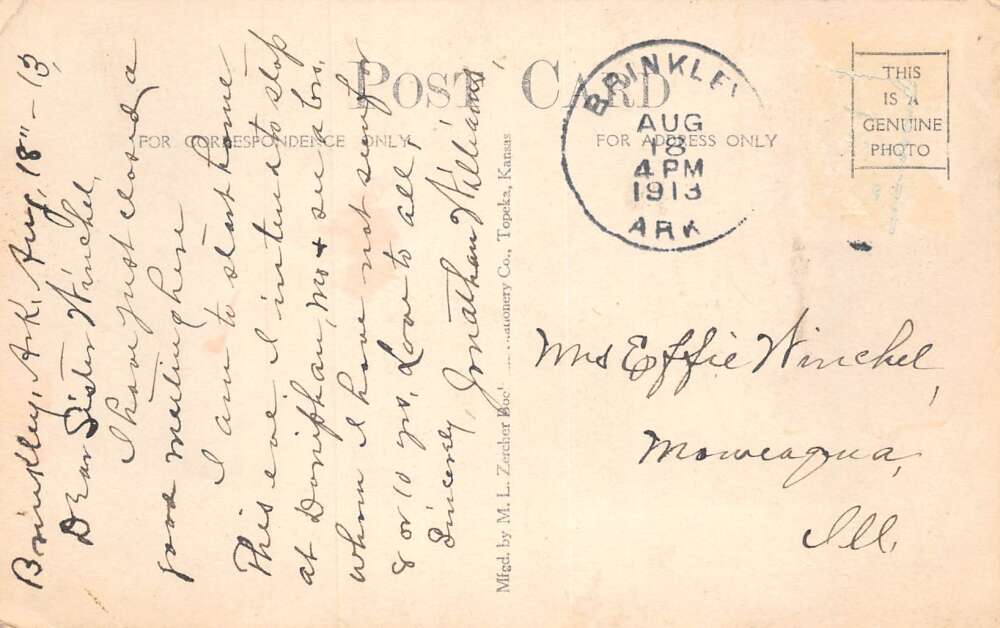 POST CARD
FOR CORRESPONDENCE ONLY
FOR ADDRESS ONLY
THIS
IS A
GENUINE
PHOTO
BRINKLEY
AUG
18
4 PM
1913
ARK
Brinkley, Ark, Aug, 18" - 13,
Dear Sister Winchel,
I have just closed a
good meeting here
I am to start home
This eve. I intend to stop
at Doniphan, Mo + see a bro.
whom I have not seen for
8 or 10 yrs. Love to all,
Sincerely, Jonathan Williams
Mfgd. by M. L. Zercher Boo Stationery Co., Topeka, Kansas
Mrs Effie Winchel,
Moweaqua,
Ill.